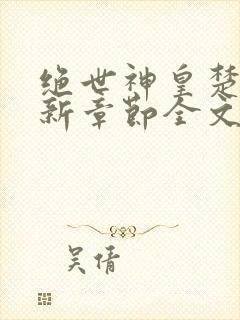 绝世神皇楚
新章节全文
吴倩